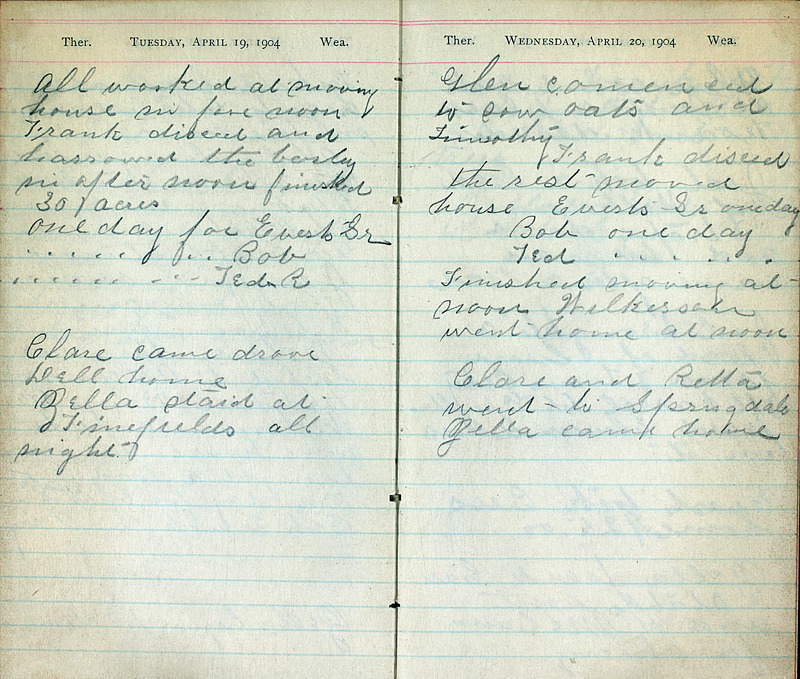 Ther. Tuesday, April 19, 1904 Wea.
All worked at moving
house in fore noon
Frank disced and
harrowed the barley
in after noon finished
30 acres
one day for Everts Sr
" " " " " Bob
" " " " " " Ted R
Clare came drove
Dell home
Zella staid at
Finefields all
night
Ther. Wednesday, April 20, 1904 Wea.
Glen comenced
to sow oats and
Timothy
Frank disced
the rest moved
house Everts Sr one day
Bob one day
Ted " " "
Finished moving at
noon Wilkerson
went home at noon
Clare and Retta
went to Springdale
Zella came home